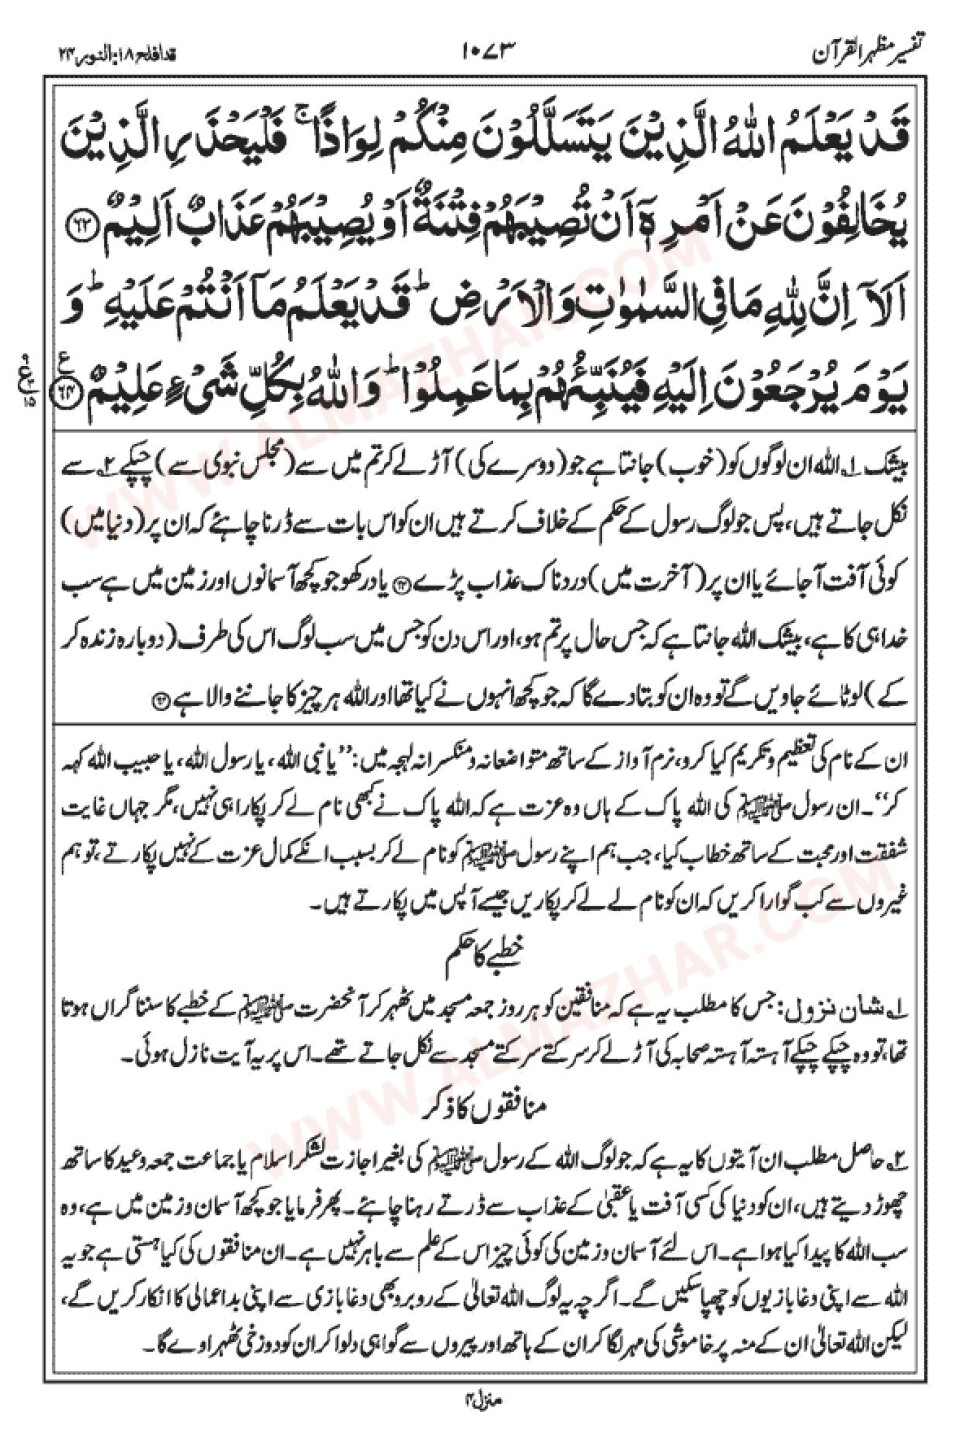 تفسیر مظہر القرآن
۱۰۷۳
قد افلح ۱۸: النور ۲۴
قَدْ يَعْلَمُ اللّٰهُ الَّذِيْنَ يَتَسَلَّلُوْنَ مِنْكُمْ لِوَاذًا ۚ فَلْيَحْذَرِ الَّذِيْنَ
يُخَالِفُوْنَ عَنْ اَمْرِهٖۤ اَنْ تُصِيْبَهُمْ فِتْنَةٌ اَوْ يُصِيْبَهُمْ عَذَابٌ اَلِيْمٌ ﴿۶۳﴾
اَلَاۤ اِنَّ لِلّٰهِ مَا فِي السَّمٰوٰتِ وَالْاَرْضِ ؕ قَدْ يَعْلَمُ مَاۤ اَنْتُمْ عَلَيْهِ ؕ وَ
يَوْمَ يُرْجَعُوْنَ اِلَيْهِ فَيُنَبِّئُهُمْ بِمَا عَمِلُوْا ؕ وَاللّٰهُ بِكُلِّ شَيْءٍ عَلِيْمٌ ﴿۶۴﴾
بیشک ۱؎ اللہ ان لوگوں کو (خوب) جانتا ہے جو (دوسرے کی) آڑ لے کر تم میں سے (مجلس نبوی سے) چپکے ۲؎ سے
نکل جاتے ہیں، پس جو لوگ رسول کے حکم کے خلاف کرتے ہیں ان کو اس بات سے ڈرنا چاہئے کہ ان پر (دنیا میں)
کوئی آفت آجائے یا ان پر (آخرت میں) دردناک عذاب پڑے ﴿۶۳﴾ یاد رکھو جو کچھ آسمانوں اور زمین میں ہے سب
خدا ہی کا ہے، بیشک اللہ جانتا ہے کہ جس حال پر تم ہو، اور اس دن کو جس میں سب لوگ اس کی طرف (دوبارہ زندہ کر
کے) لوٹائے جاویں گے تو وہ ان کو بتادے گا کہ جو کچھ انہوں نے کیا تھا اور اللہ ہر چیز کا جاننے والا ہے ﴿۶۴﴾
ان کے نام کی تعظیم و تکریم کیا کرو، نرم آواز کے ساتھ متواضعانہ و منکسرانہ لہجہ میں: ’’یا نبی اللہ، یا رسول اللہ، یا حبیب اللہ کہہ
کر‘‘۔ ان رسول ﷺ کی اللہ پاک کے ہاں وہ عزت ہے کہ اللہ پاک نے کبھی نام لے کر پکارا ہی نہیں، مگر جہاں غایت
شفقت اور محبت کے ساتھ خطاب کیا، جب ہم اپنے رسول ﷺ کو نام لے کر بسبب انکے کمال عزت کے نہیں پکارتے، تو ہم
غیروں سے کب گوارا کریں کہ ان کو نام لے لے کر پکاریں جیسے آپس میں پکارتے ہیں۔
خطبے کا حکم
۱؎ شان نزول: جس کا مطلب یہ ہے کہ منافقین کو ہر روز جمعہ مسجد میں ٹھہر کر آنحضرت ﷺ کے خطبے کا سننا گراں ہوتا
تھا، تو وہ چپکے چپکے آہستہ آہستہ صحابہ کی آڑ لے کر سرکتے سرکتے مسجد سے نکل جاتے تھے۔ اس پر یہ آیت نازل ہوئی۔
منافقوں کا ذکر
۲؎ حاصل مطلب ان آیتوں کا یہ ہے کہ جو لوگ اللہ کے رسول ﷺ کی بغیر اجازت لشکر اسلام یا جماعت جمعہ و عید کا ساتھ
چھوڑ دیتے ہیں، ان کو دنیا کی کسی آفت یا عقبیٰ کے عذاب سے ڈرتے رہنا چاہئے۔ پھر فرمایا جو کچھ آسمان و زمین میں ہے، وہ
سب اللہ کا پیدا کیا ہوا ہے۔ اس لئے آسمان و زمین کی کوئی چیز اس کے علم سے باہر نہیں ہے۔ ان منافقوں کی کیا ہستی ہے جو یہ
اللہ سے اپنی دغابازیوں کو چھپا سکیں گے۔ اگرچہ یہ لوگ اللہ تعالیٰ کے روبرو بھی دغابازی سے اپنی بداعمالی کا انکار کریں گے،
لیکن اللہ تعالیٰ ان کے منہ پر خاموشی کی مہر لگا کر ان کے ہاتھ اور پیروں سے گواہی دلوا کر ان کو دوزخی ٹھہراوے گا۔
منزل ۴
WWW.ALMAZHAR.COM
WWW.ALMAZHAR.COM